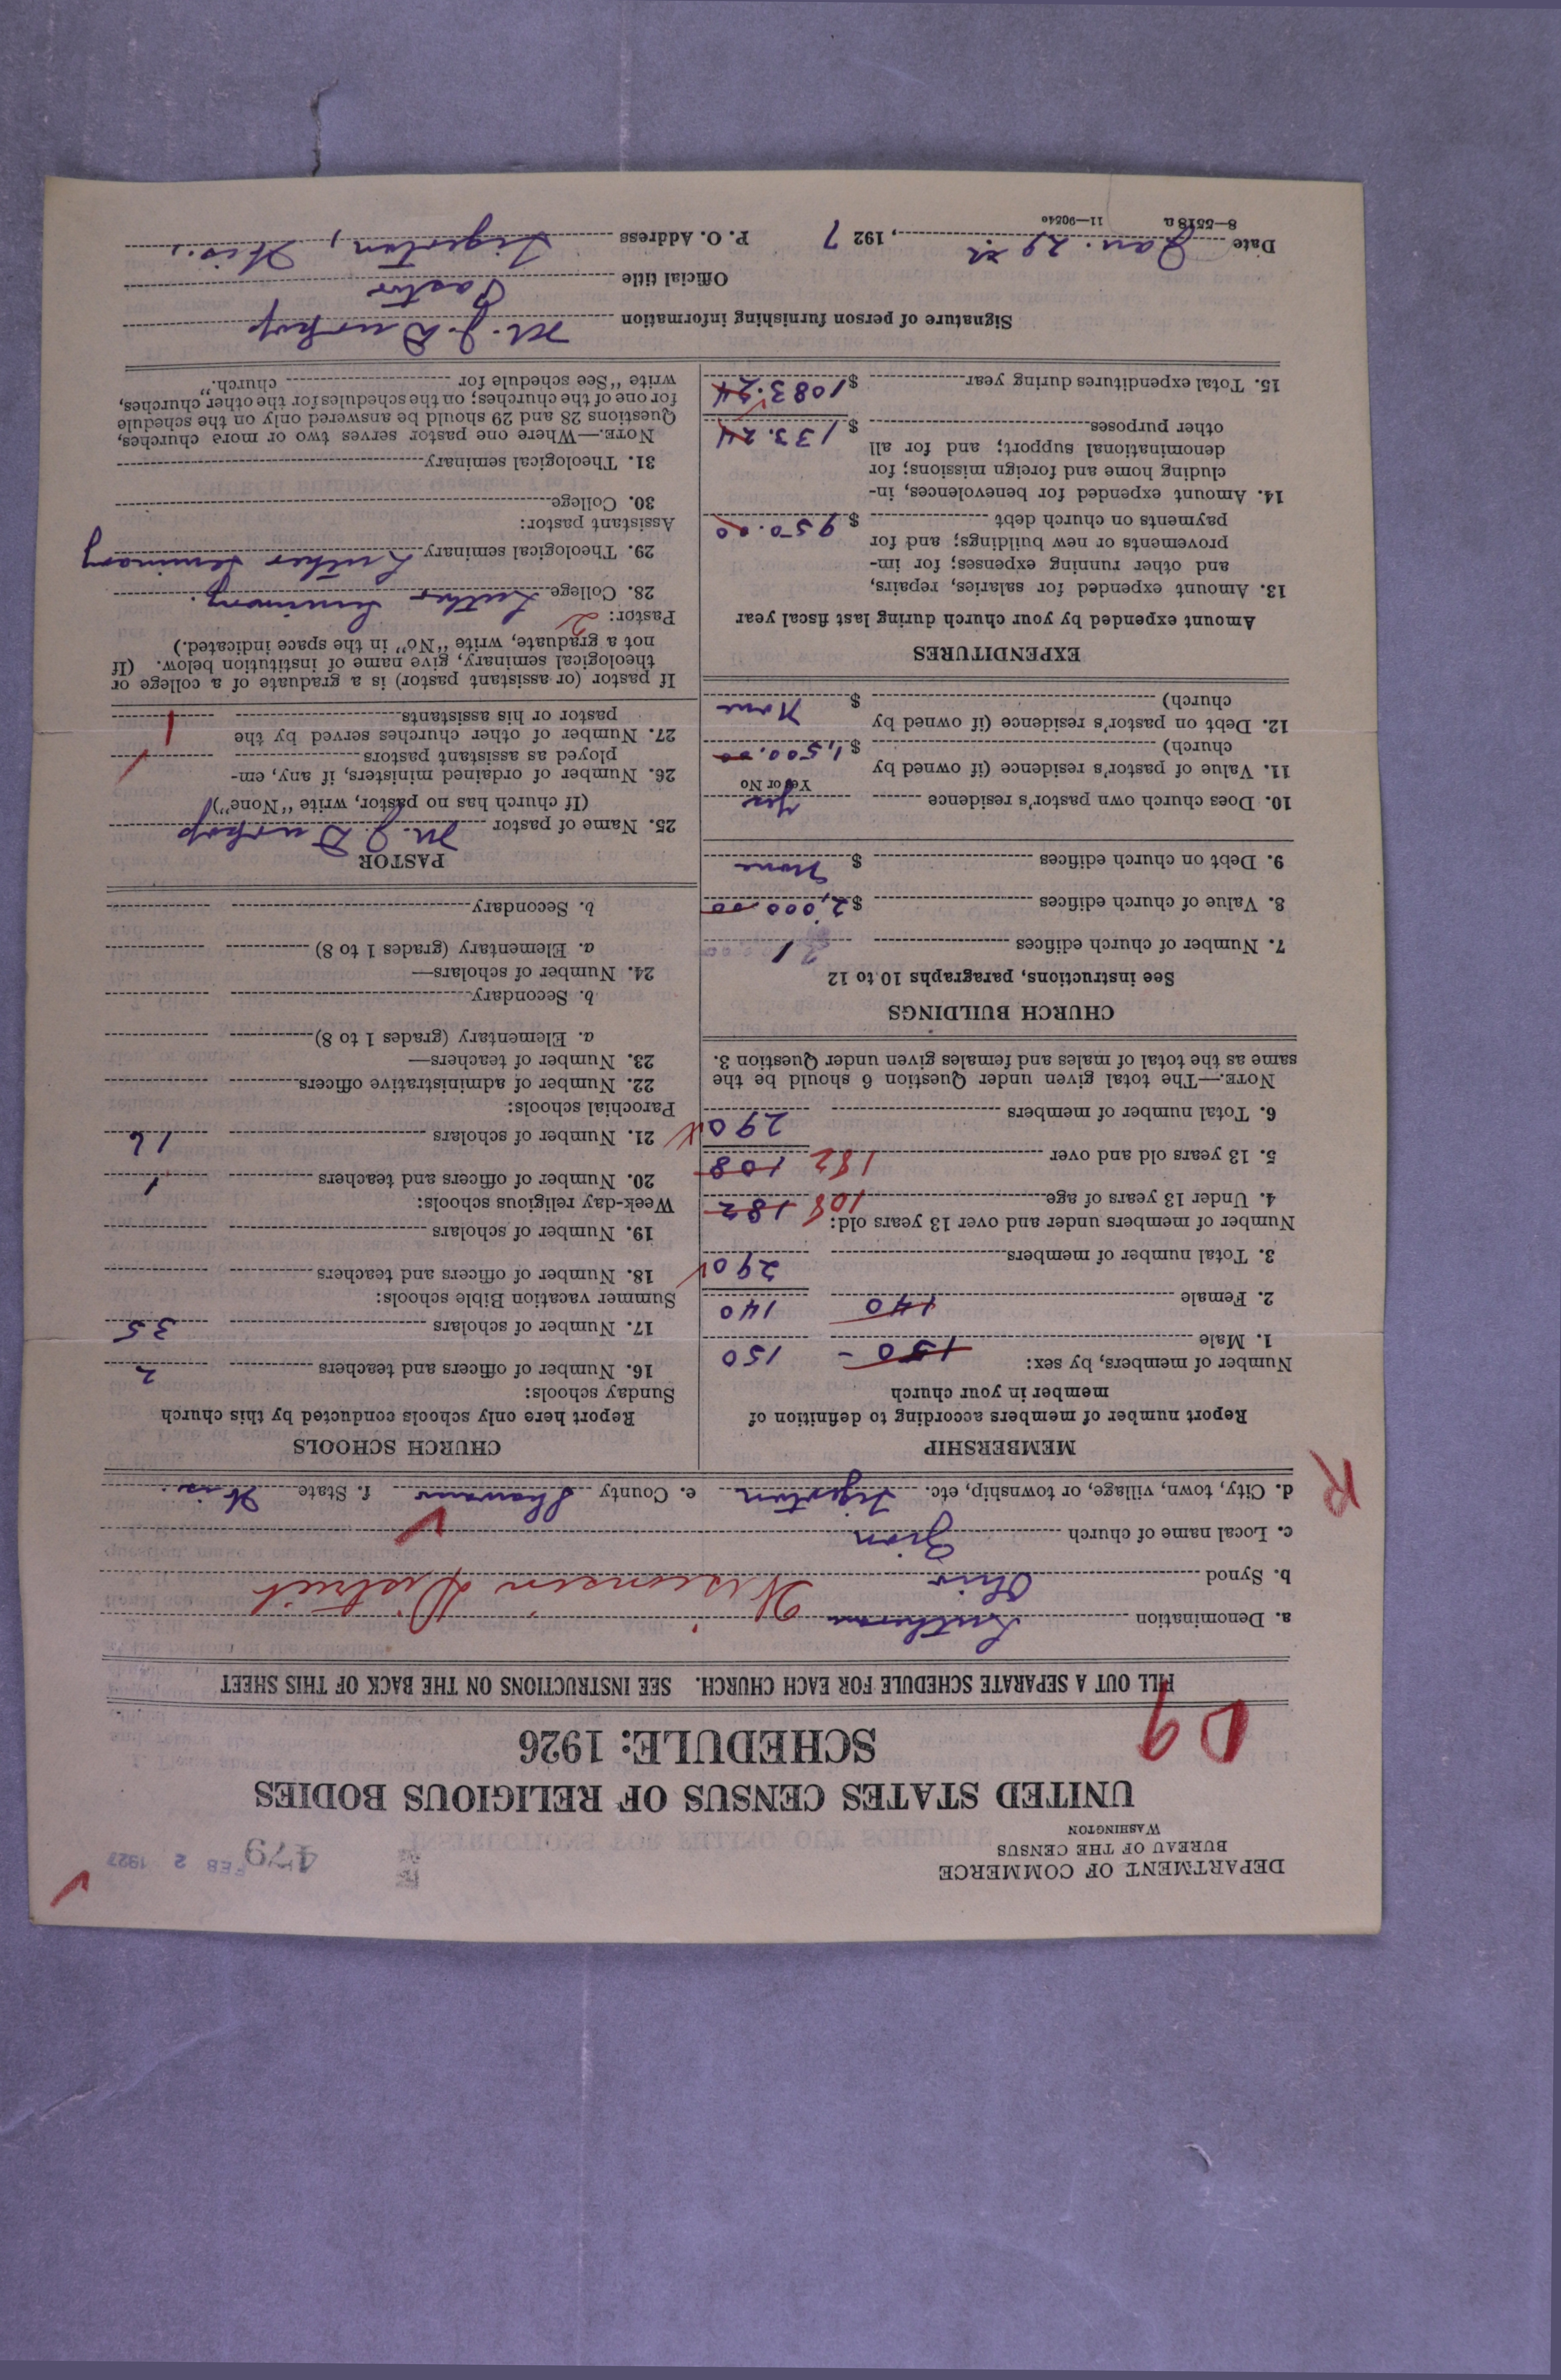 DEPARTMENT OF COMMERCE
BUREAU OF THE CENSUS
WASHINGTON
479
FEB 2 1927
UNITED STATES CENSUS OF RELIGIOUS BODIES
SCHEDULE: 1926
FILL OUT A SEPARATE SCHEDULE FOR EACH CHURCH. SEE INSTRUCTIONS ON THE BACK OF THIS SHEET
a. Denomination Lutheran Wisconsin District
b. Synod Ohio
c. Local name of church Zion
d. City, town, village, or township, etc. Tigerton e. County Shawano f. State Wis.
R
MEMBERSHIP
Report number of members according to definition of
member in your church
Number of members, by sex:
1. Male 150 - 150
2. Female 140 140
3. Total number of members 290
Number of members under and over 13 years old:
4. Under 13 years of age 108 182
5. 13 years old and over 182 108
6. Total number of members 290
NOTE.—The total given under Question 6 should be the
same as the total of males and females given under Question 3.
CHURCH BUILDINGS
See instructions, paragraphs 10 to 12
7. Number of church edifices 1
8. Value of church edifices $ 2,000.00
9. Debt on church edifices $ None
10. Does church own pastor's residence Yes
Yes or No
11. Value of pastor's residence (if owned by
church) $ 1,500.00
12. Debt on pastor's residence (if owned by
church) $ None
EXPENDITURES
Amount expended by your church during last fiscal year
13. Amount expended for salaries, repairs,
and other running expenses; for im-
provements or new buildings; and for
payments on church debt $ 950.00
14. Amount expended for benevolences, in-
cluding home and foreign missions; for
denominational support; and for all
other purposes $ 133.24
15. Total expenditures during year $ 1083.24
CHURCH SCHOOLS
Report here only schools conducted by this church
Sunday schools:
16. Number of officers and teachers 2
17. Number of scholars 35
Summer vacation Bible schools:
18. Number of officers and teachers
19. Number of scholars
Week-day religious schools:
20. Number of officers and teachers 1
21. Number of scholars 16
Parochial schools:
22. Number of administrative officers
23. Number of teachers—
a. Elementary (grades 1 to 8)
b. Secondary
24. Number of scholars—
a. Elementary (grades 1 to 8)
b. Secondary
PASTOR
25. Name of pastor M. J.
(If church has no pastor, write "None")
26. Number of ordained ministers, if any, em-
ployed as assistant pastors
27. Number of other churches served by the
pastor or his assistants 1
If pastor (or assistant pastor) is a graduate of a college or
theological seminary, give name of institution below. (If
not a graduate, write "No" in the space indicated.)
Pastor: 2
28. College Luther Seminary.
29. Theological seminary Luther Seminary
Assistant pastor:
30. College
31. Theological seminary
NOTE.—Where one pastor serves two or more churches,
Questions 28 and 29 should be answered only on the schedule
for one of the churches; on the schedules for the other churches,
write "See schedule for church."
Signature of person furnishing information M. J.
Official title Pastor
Date Jan. 29th, 1927 P. O. Address Tigerton, Wis.
8—5518a 11—90540